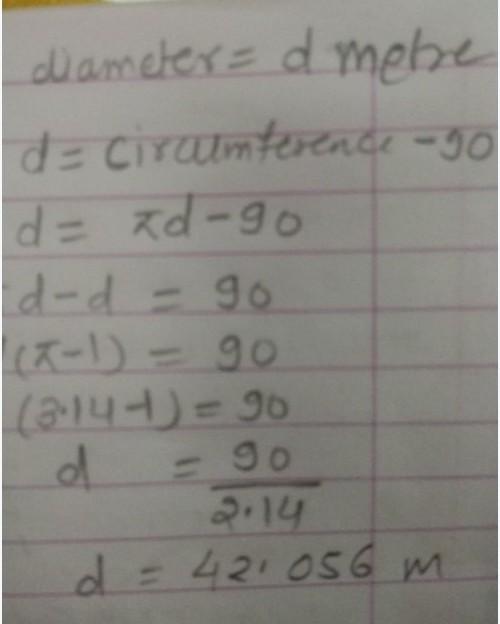 diameter = d metre
d = Circumference - 90
d = πd - 90
d - d = 90
(π-1) = 90
(3.14-1) = 90
d = 90/2.14
d = 42.056 m